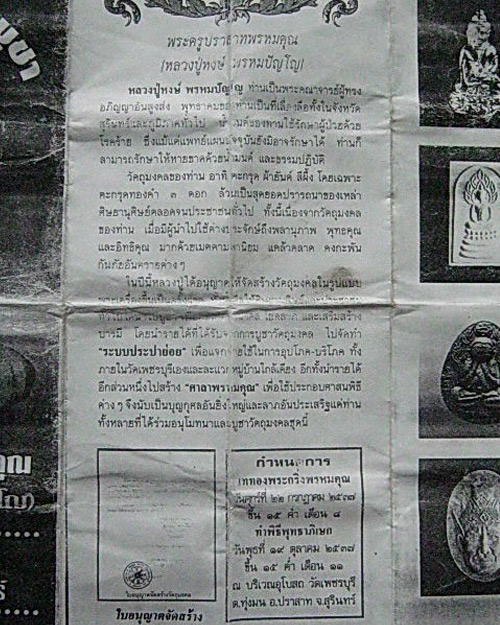 พระครูปราสาทพรหมคุณ
(หลวงปู่หงษ์ พรหมปัญโญ)
หลวงปู่หงษ์ พรหมปัญโญ ท่านเป็นพระคณาจารย์ผู้ทรง
อภิญญาอันสูงส่ง พุทธาคมของท่านเป็นที่เลื่องลือทั้งในจังหวัด
สุรินทร์และภูมิภาคทั่วไป น้ำมนต์ของท่านใช้รักษาผู้ป่วยด้วย
โรคร้าย ซึ่งแม้แต่แพทย์แผนปัจจุบันยังมิอาจรักษาได้ ท่านก็
สามารถรักษาให้หายขาดด้วยน้ำมนต์ และธรรมปฏิบัติ
วัตถุมงคลของท่าน อาทิ ตะกรุด ผ้ายันต์ สีผึ้ง โดยเฉพาะ
ตะกรุดทองคำ ๓ ดอก ล้วนเป็นสุดยอดปรารถนาของเหล่า
ศิษยานุศิษย์ตลอดจนประชาชนทั่วไป ทั้งนี้เนื่องจากวัตถุมงคล
ของท่าน เมื่อมีผู้นำไปใช้ต่างประจักษ์ถึงพลานุภาพ พุทธคุณ
และอิทธิคุณ มากด้วยเมตตามหานิยม แคล้วคลาด คงกะพัน
กันภัยอันตรายต่าง ๆ
ในปีนี้หลวงปู่ได้อนุญาตให้จัดสร้างวัตถุมงคลในรูปแบบ
และเสริมสร้าง
บารมี โดยนำรายได้ที่ได้รับจากการบูชาวัตถุมงคล ไปจัดทำ
"ระบบประปาย่อย" เพื่อแจกจ่ายใช้ในการอุปโภค-บริโภค ทั้ง
ภายในวัดเพชรบุรีเองและละแวกหมู่บ้านใกล้เคียง อีกทั้งนำรายได้
อีกส่วนหนึ่งไปสร้าง "ศาลาพรหมคุณ" เพื่อใช้ประกอบศาสนพิธี
ต่าง ๆ จึงนับเป็นบุญกุศลอันยิ่งใหญ่และลาภอันประเสริฐแด่ท่าน
ทั้งหลายที่ได้ร่วมอนุโมทนาและบูชาวัตถุมงคลชุดนี้
กำหนดการ
เททองพระกริ่งพรหมคุณ
วันศุกร์ที่ ๒๒ กรกฎาคม ๒๕๓๗
ขึ้น ๑๕ ค่ำ เดือน ๘
ทำพิธีพุทธาภิเษก
วันพุธที่ ๑๙ ตุลาคม ๒๕๓๗
ขึ้น ๑๕ ค่ำ เดือน ๑๑
ณ บริเวณอุโบสถ วัดเพชรบุรี
ต.ทุ่งมน อ.ปราสาท จ.สุรินทร์
ใบอนุญาตจัดสร้างวัตถุมงคล
ใบอนุญาตจัดสร้าง